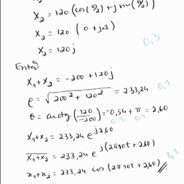 x₂ = 120 (cos(π/2) + j sin(π/2))
x₂ = 120 (0 + j·1)
x₂ = 120j
0,3
x₁+x₂ = -200 + 120j
ρ = √(200² + 120²) = 233,24
θ = arctg(120/-200) = -0,54 + π = 2,60
x₁+x₂ = 233,24 e^{j2,60}
x₁+x₂ = 233,24 e^{j(2π10t + 2,60)}
x₁+x₂ = 233,24 cos(2π10t + 2,60)